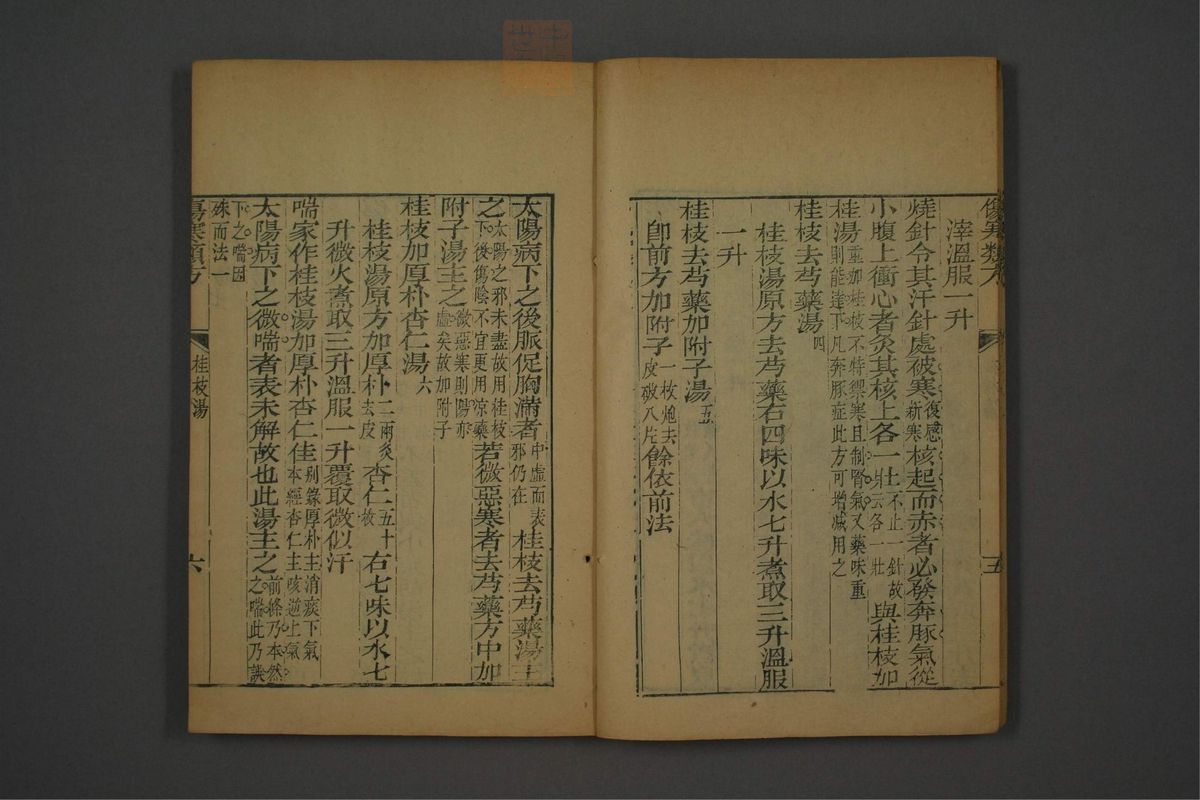 傷寒類方
五
滓溫服一升
燒針令其汗針處被寒復感新寒核起而赤者必發奔豚氣從
小腹上衝心者灸其核上各一壯不止一針故云各一壯與桂枝加
桂湯重加桂枝不特禦寒且制腎氣又藥味重則能達下凡奔豚症此方可增减用之
桂枝去芍藥湯四
桂枝湯原方去芍藥右四味以水七升煮取三升溫服
一升
桂枝去芍藥加附子湯五
卽前方加附子一枚炮去皮破八片餘依前法
太陽病下之後脈促胸滿者中虛而表邪仍在桂枝去芍藥湯主
之太陽之邪未盡故用桂枝下後傷陰不宜更用凉藥若微惡寒者去芍藥方中加
附子湯主之微惡寒則陽亦虛矣故加附子
桂枝加厚朴杏仁湯六
桂枝湯原方加厚朴二兩炙去皮杏仁五十枚右七味以水七
升微火煮取三升溫服一升覆取微似汗
喘家作桂枝湯加厚朴杏仁佳別錄厚朴主消痰下氣本經杏仁主咳逆上氣
太陽病下之微喘者表未解故也此湯主之前條乃本然之喘此乃誤
下之喘因殊而法一
傷寒類方
桂枝湯
六